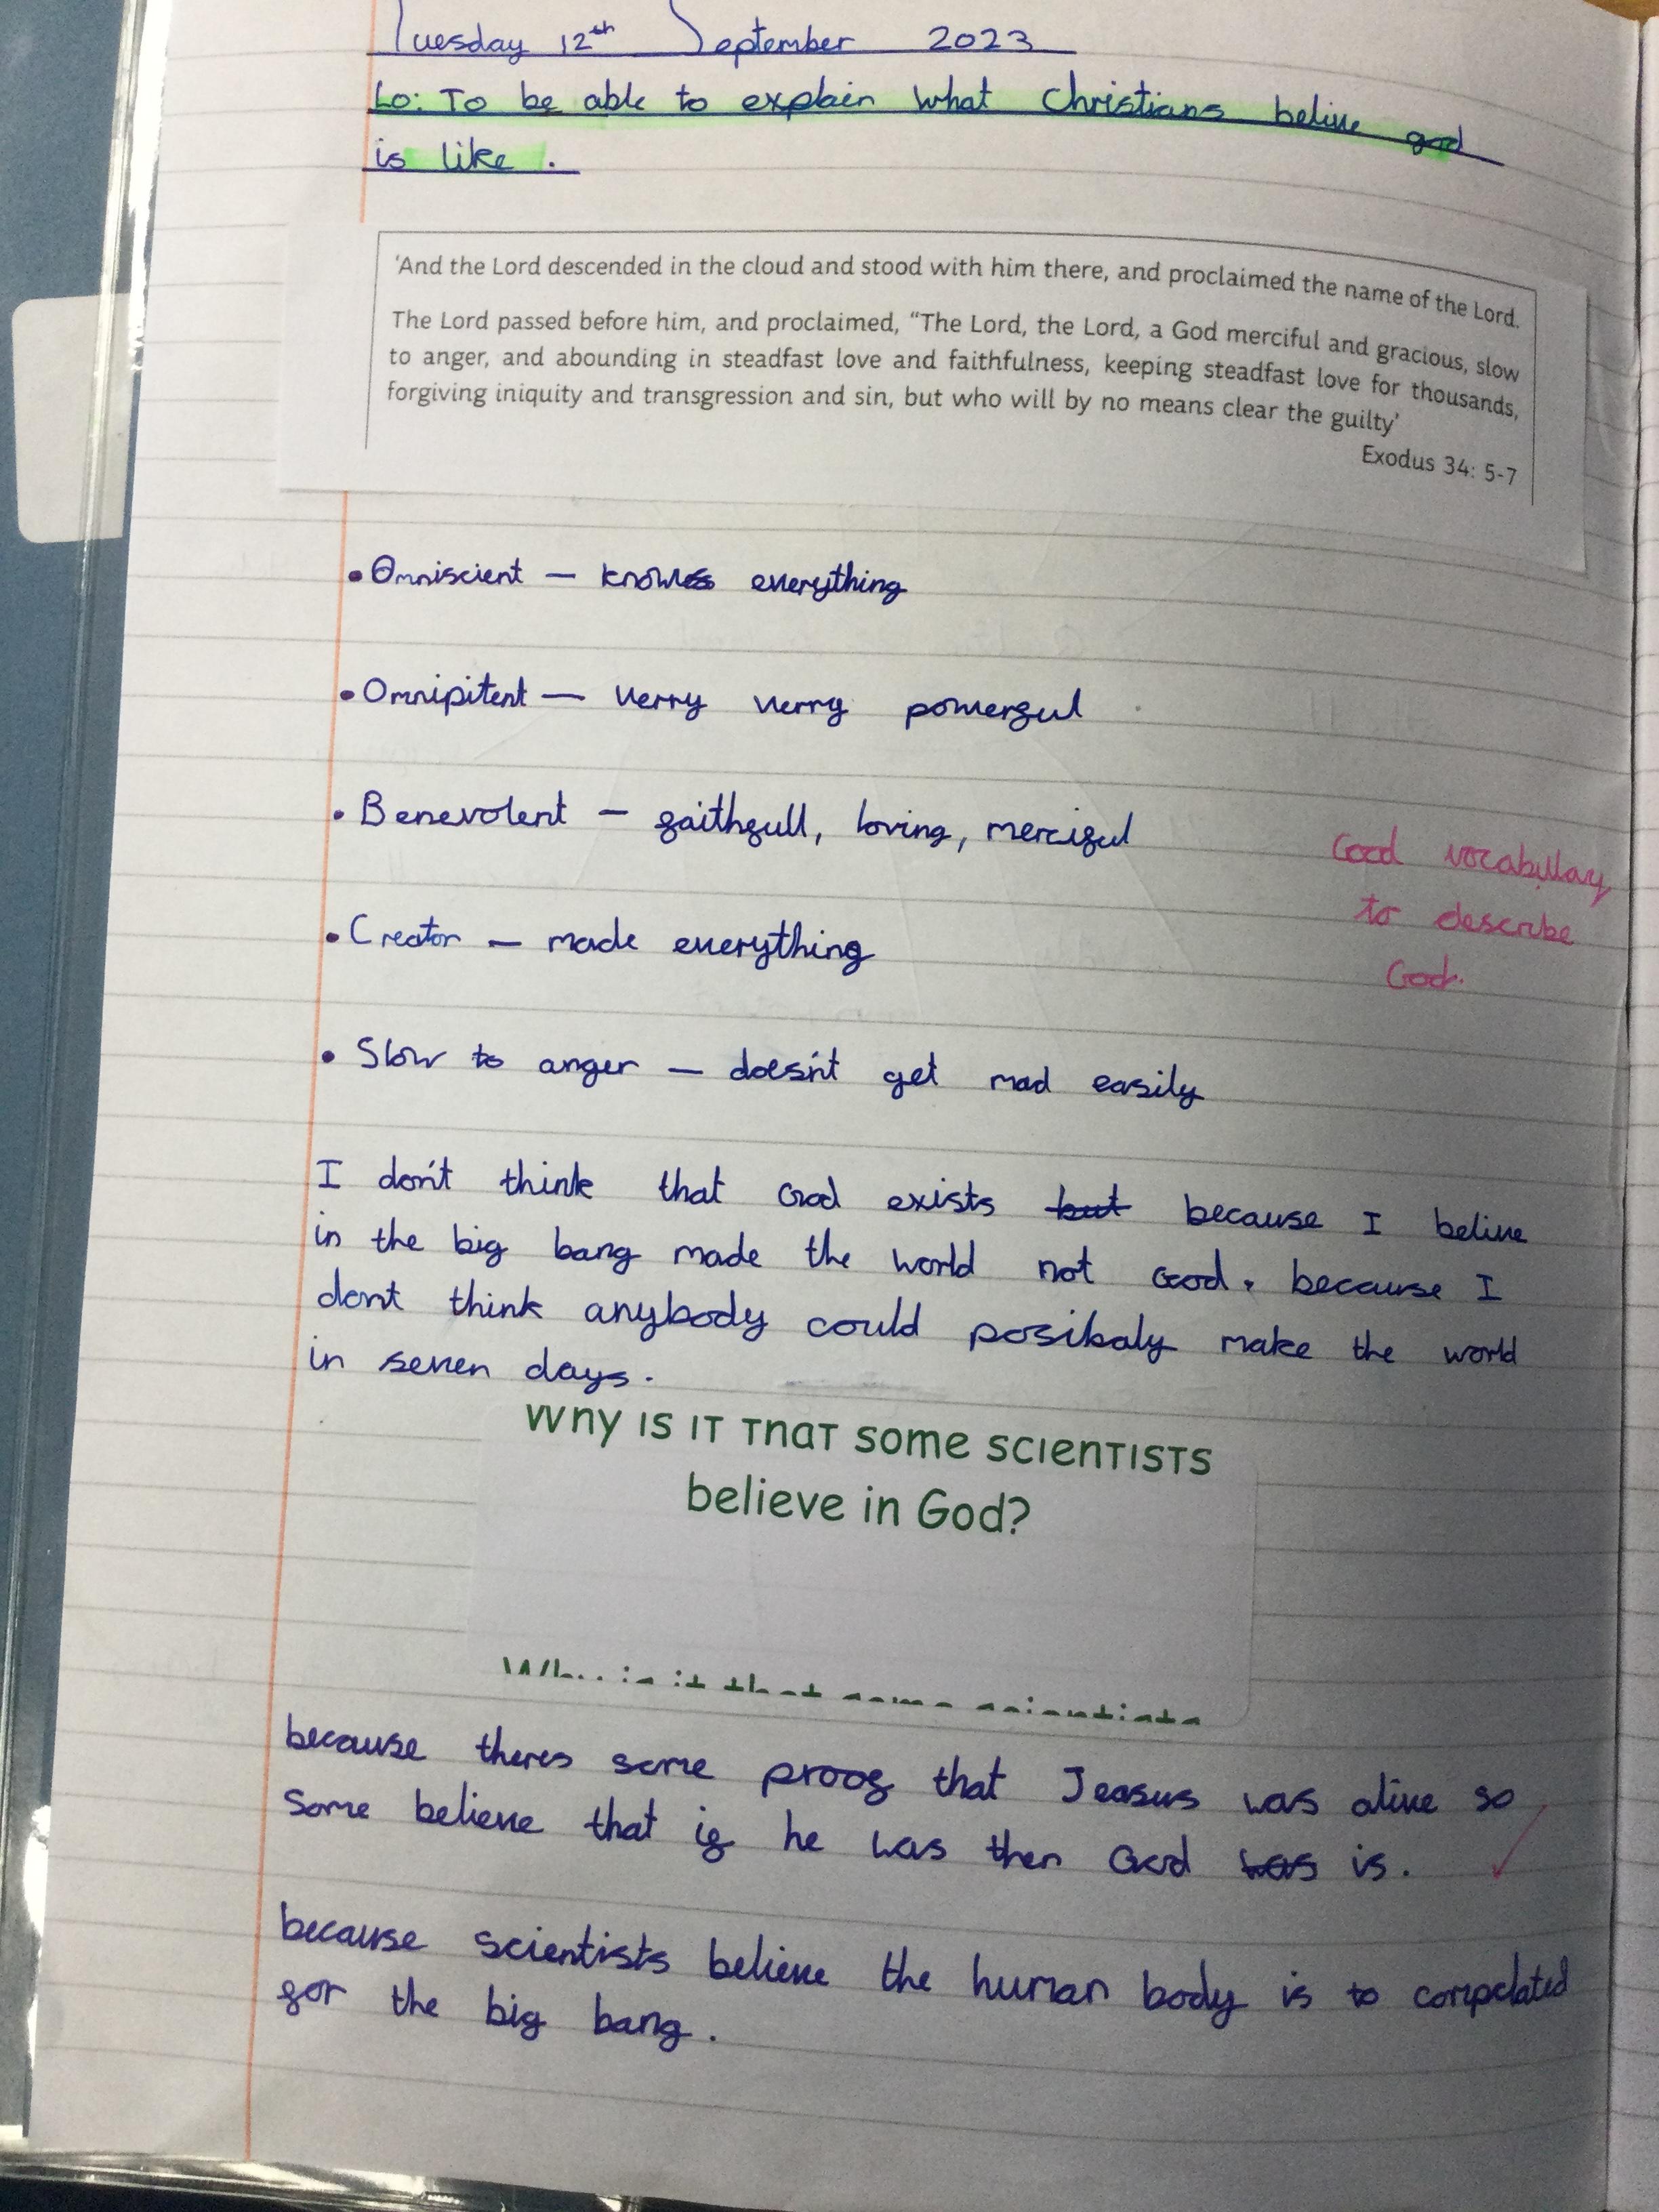 Tuesday 12th September 2023
Lo: To be able to explain what Christians belive god
is like .
'And the Lord descended in the cloud and stood with him there, and proclaimed the name of the Lord.
The Lord passed before him, and proclaimed, “The Lord, the Lord, a God merciful and gracious, slow
to anger, and abounding in steadfast love and faithfulness, keeping steadfast love for thousands,
forgiving iniquity and transgression and sin, but who will by no means clear the guilty'
Exodus 34: 5-7
• Omniscient — knows everything
• Omnipitent — verry verry powerful
• Benevolent — faithfull, loving, merciful
Good vocabullary
to describe
God.
• Creator — made everything
• Slow to anger — does'nt get mad easily
I don't think that God exists but because I belive
in the big bang made the world not God. because I
dont think anybody could posibaly make the world
in seven days.
Why is it that some scientists
believe in God?
Why is it that some scientists
because theres some proof that Jeasus was alive so
some believe that if he was then God was is.
because scientists believe the human body is to compelated
for the big bang.